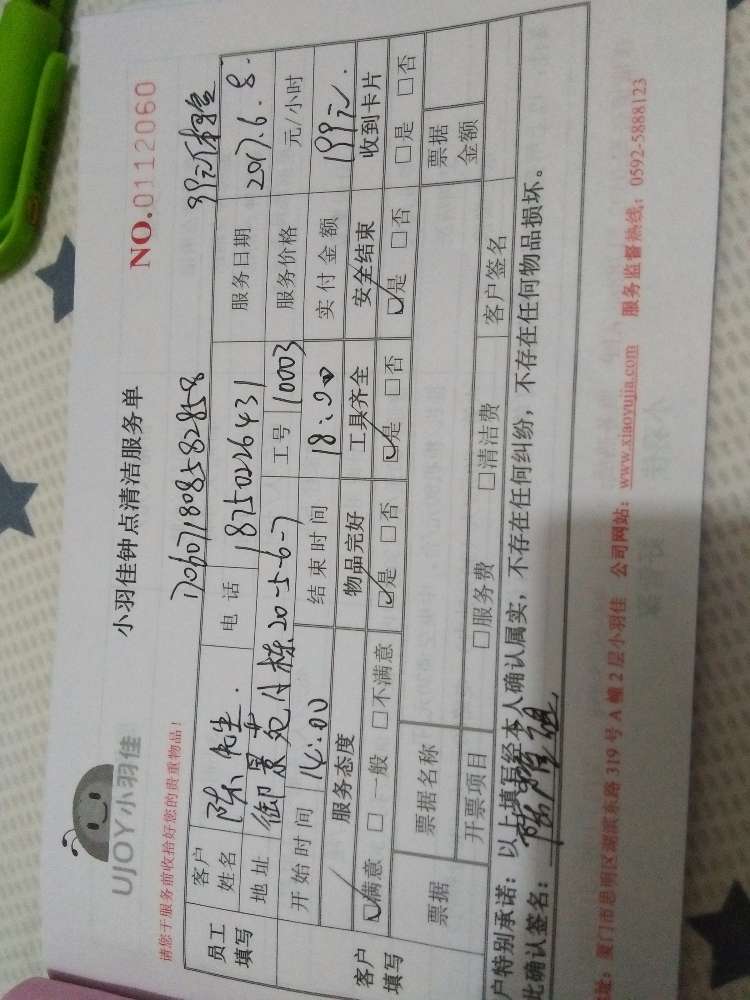 UJOY小羽佳
小羽佳钟点清洁服务单
NO.0112060
请您于服务前收拾好您的贵重物品！
1706071808582858
员工填写
客户姓名 陈先生 电话 18750226431 服务日期 2017.6.8.
地址 御景苑 20-5-6-7 工号 10003 服务价格 元/小时
开始时间 14:00 结束时间 18:00 实付金额 199元.
客户填写
服务态度 物品完好 工具齐全 安全结束 收到卡片
☑满意 □一般 □不满意 ☑是 □否 ☑是 □否 ☑是 □否 □是 □否
票据 票据名称 票据金额
开票项目 □服务费 □清洁费 客户签名
户特别承诺：以上填写经本人确认属实，不存在任何纠纷，不存在任何物品损坏。
此确认签名：
址：厦门市思明区湖滨东路319号A幢2层小羽佳 公司网站：www.xiaoyujia.com 服务监督热线：0592-5888123